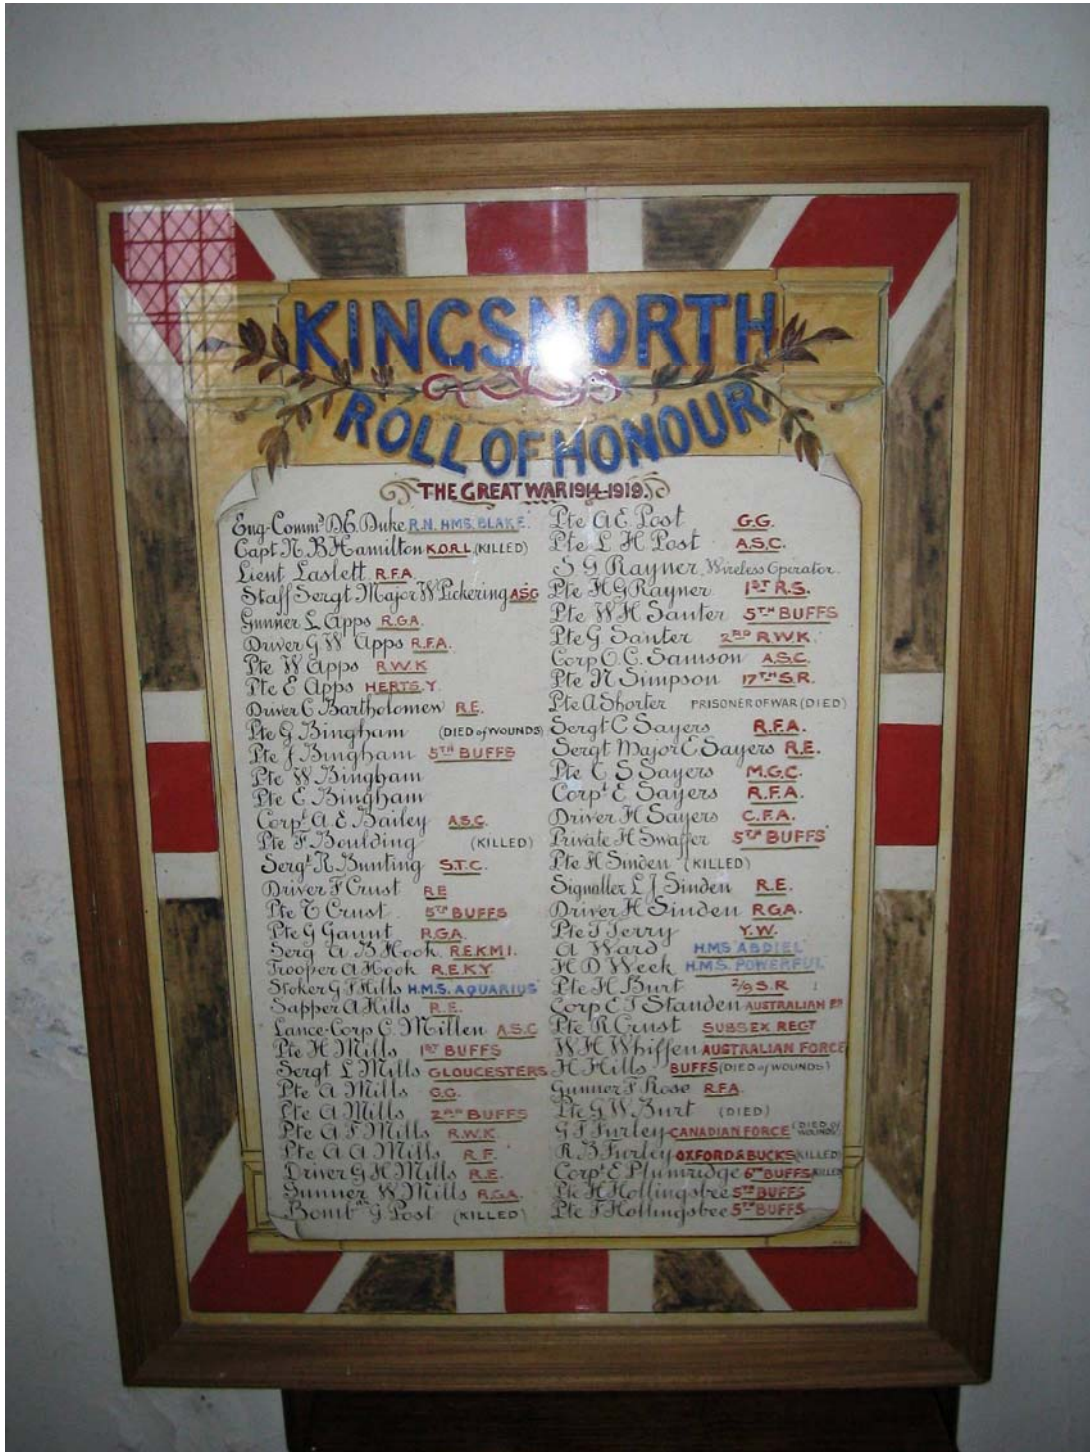 KINGSNORTH
ROLL OF HONOUR
THE GREAT WAR 1914-1919.
Eng-Commr D.E. Duke R.N. HMS. BLAKE.
Capt N. B Hamilton K.O.R.L (KILLED)
Lieut Laslett R.F.A.
Staff Sergt Major W Pickering ASC
Gunner L Apps R.GA.
Driver G W Apps R.F.A.
Pte W Apps R.W.K
Pte E Apps HERTS.Y.
Driver C Bartholomew R.E.
Pte G Bingham (DIED of WOUNDS)
Pte J Bingham 5TH BUFFS
Pte W Bingham
Pte E Bingham
Corpl A. E. Bailey A.S.C.
Pte F. Boulding (KILLED)
Sergt R. Bunting S.T.C.
Driver F Crust RE
Pte T Crust 5TH BUFFS
Pte G Gaunt R.GA.
Serg A. B Hook R.E.K.M.I.
Trooper A Hook R.E.K.Y.
Stoker G F Hills H.M.S. AQUARIUS
Sapper A Hills R.E.
Lance-Corp C. Millen A.S.C
Pte H Mills 1ST BUFFS
Sergt L Mills GLOUCESTERS
Pte A Mills G.G.
Pte A Mills 2ND BUFFS
Pte A F Mills R.W.K.
Pte A A Mills R.F.
Driver G H Mills R.E.
Gunner W Mills R.GA.
Bombdr G Post (KILLED)
Pte A E Post G.G.
Pte L H Post A.S.C.
S G Rayner Wireless Operator.
Pte H G Rayner 1ST R.S.
Pte W H Santer 5TH BUFFS
Pte G Santer 2ND R.W.K.
Corp O. C. Samson A.S.C.
Pte N Simpson 17TH S.R.
Pte A Shorter PRISONER OF WAR (DIED)
Sergt C Sayers R.F.A.
Sergt Major E. Sayers R.E.
Pte C S Sayers M.G.C.
Corpl E Sayers R.F.A.
Driver H Sayers C.F.A.
Private H Swaffer 5TH BUFFS
Pte H Sinden (KILLED)
Signaller L J Sinden R.E.
Driver H Sinden R.GA.
Pte T Terry Y.W.
A Ward H.M.S ABDIEL
H D Week H.M.S. POWERFUL
Pte H Burt 2/9 S.R
Corp E T Standen AUSTRALIAN
Pte R Crust SUSSEX REGT
W H Whiffen AUSTRALIAN FORCE
H Hills BUFFS (DIED of WOUNDS)
Gunner F Rose R.F.A.
Pte G W Burt (DIED)
G T Furley CANADIAN FORCE (DIED of WOUNDS)
R B Furley OXFORD & BUCKS (KILLED)
Corpl E Plumridge 6TH BUFFS (KILLED)
Pte H Hollingsbee 5TH BUFFS
Pte F Hollingsbee 5TH BUFFS